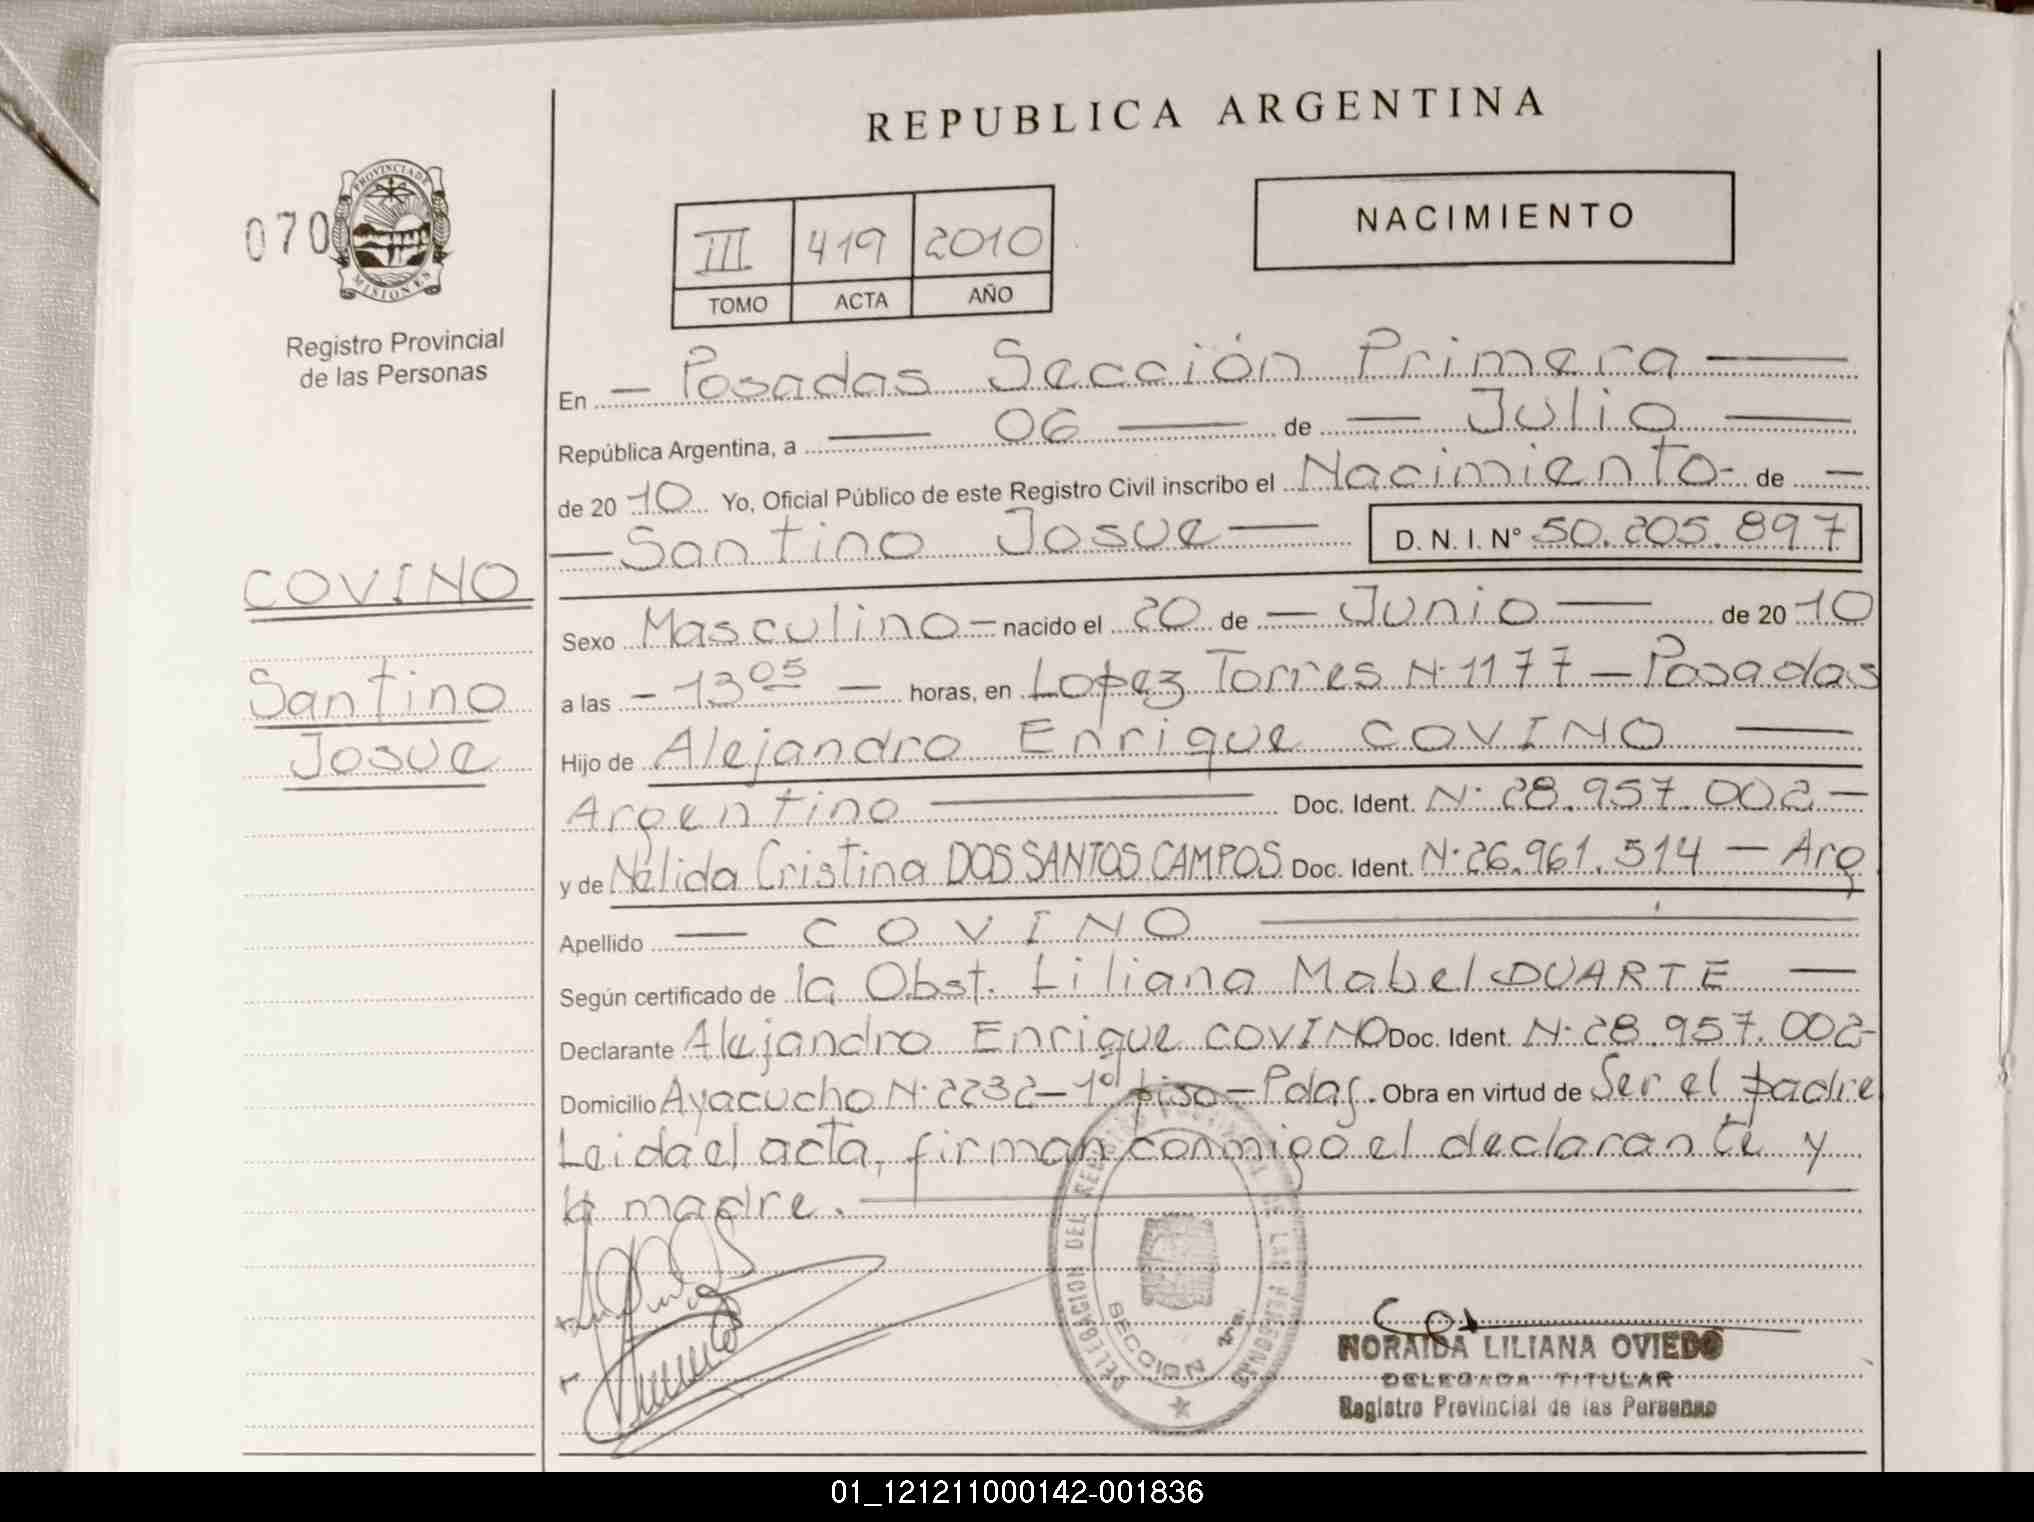 REPUBLICA ARGENTINA
070
PROVINCIA DE
MISIONES
Registro Provincial
de las Personas
III 419 2010
TOMO ACTA AÑO
NACIMIENTO
En — Posadas Sección Primera —
República Argentina, a — 06 — de — Julio —
de 20 10 Yo, Oficial Público de este Registro Civil inscribo el Nacimiento - de —
— Santino Josue — D. N. I. Nº 50.205.897
COVINO
Santino
Josue
Sexo Masculino — nacido el 20 de — Junio — de 20 10
a las - 13 05 — horas, en Lopez Torres N·1177 — Posadas
Hijo de Alejandro Enrique COVINO —
Argentino — Doc. Ident. N· 28.957.002 —
y de Nélida Cristina DOS SANTOS CAMPOS Doc. Ident. N·26.961.514 — Arg
Apellido — COVINO —
Según certificado de la Obst. Liliana Mabel DUARTE —
Declarante Alejandro Enrique COVINO Doc. Ident. N·28.957.002-
Domicilio Ayacucho N·2232 - 1º piso - Pdas. Obra en virtud de Ser el padre
Leida el acta, firman conmigo el declarante y
la madre. —
DELEGACION DEL REGISTRO PROVINCIAL DE LAS PERSONAS
SECCION 1ra.
NORAIDA LILIANA OVIEDO
DELEGADA TITULAR
Registro Provincial de las Personas
01_121211000142-001836